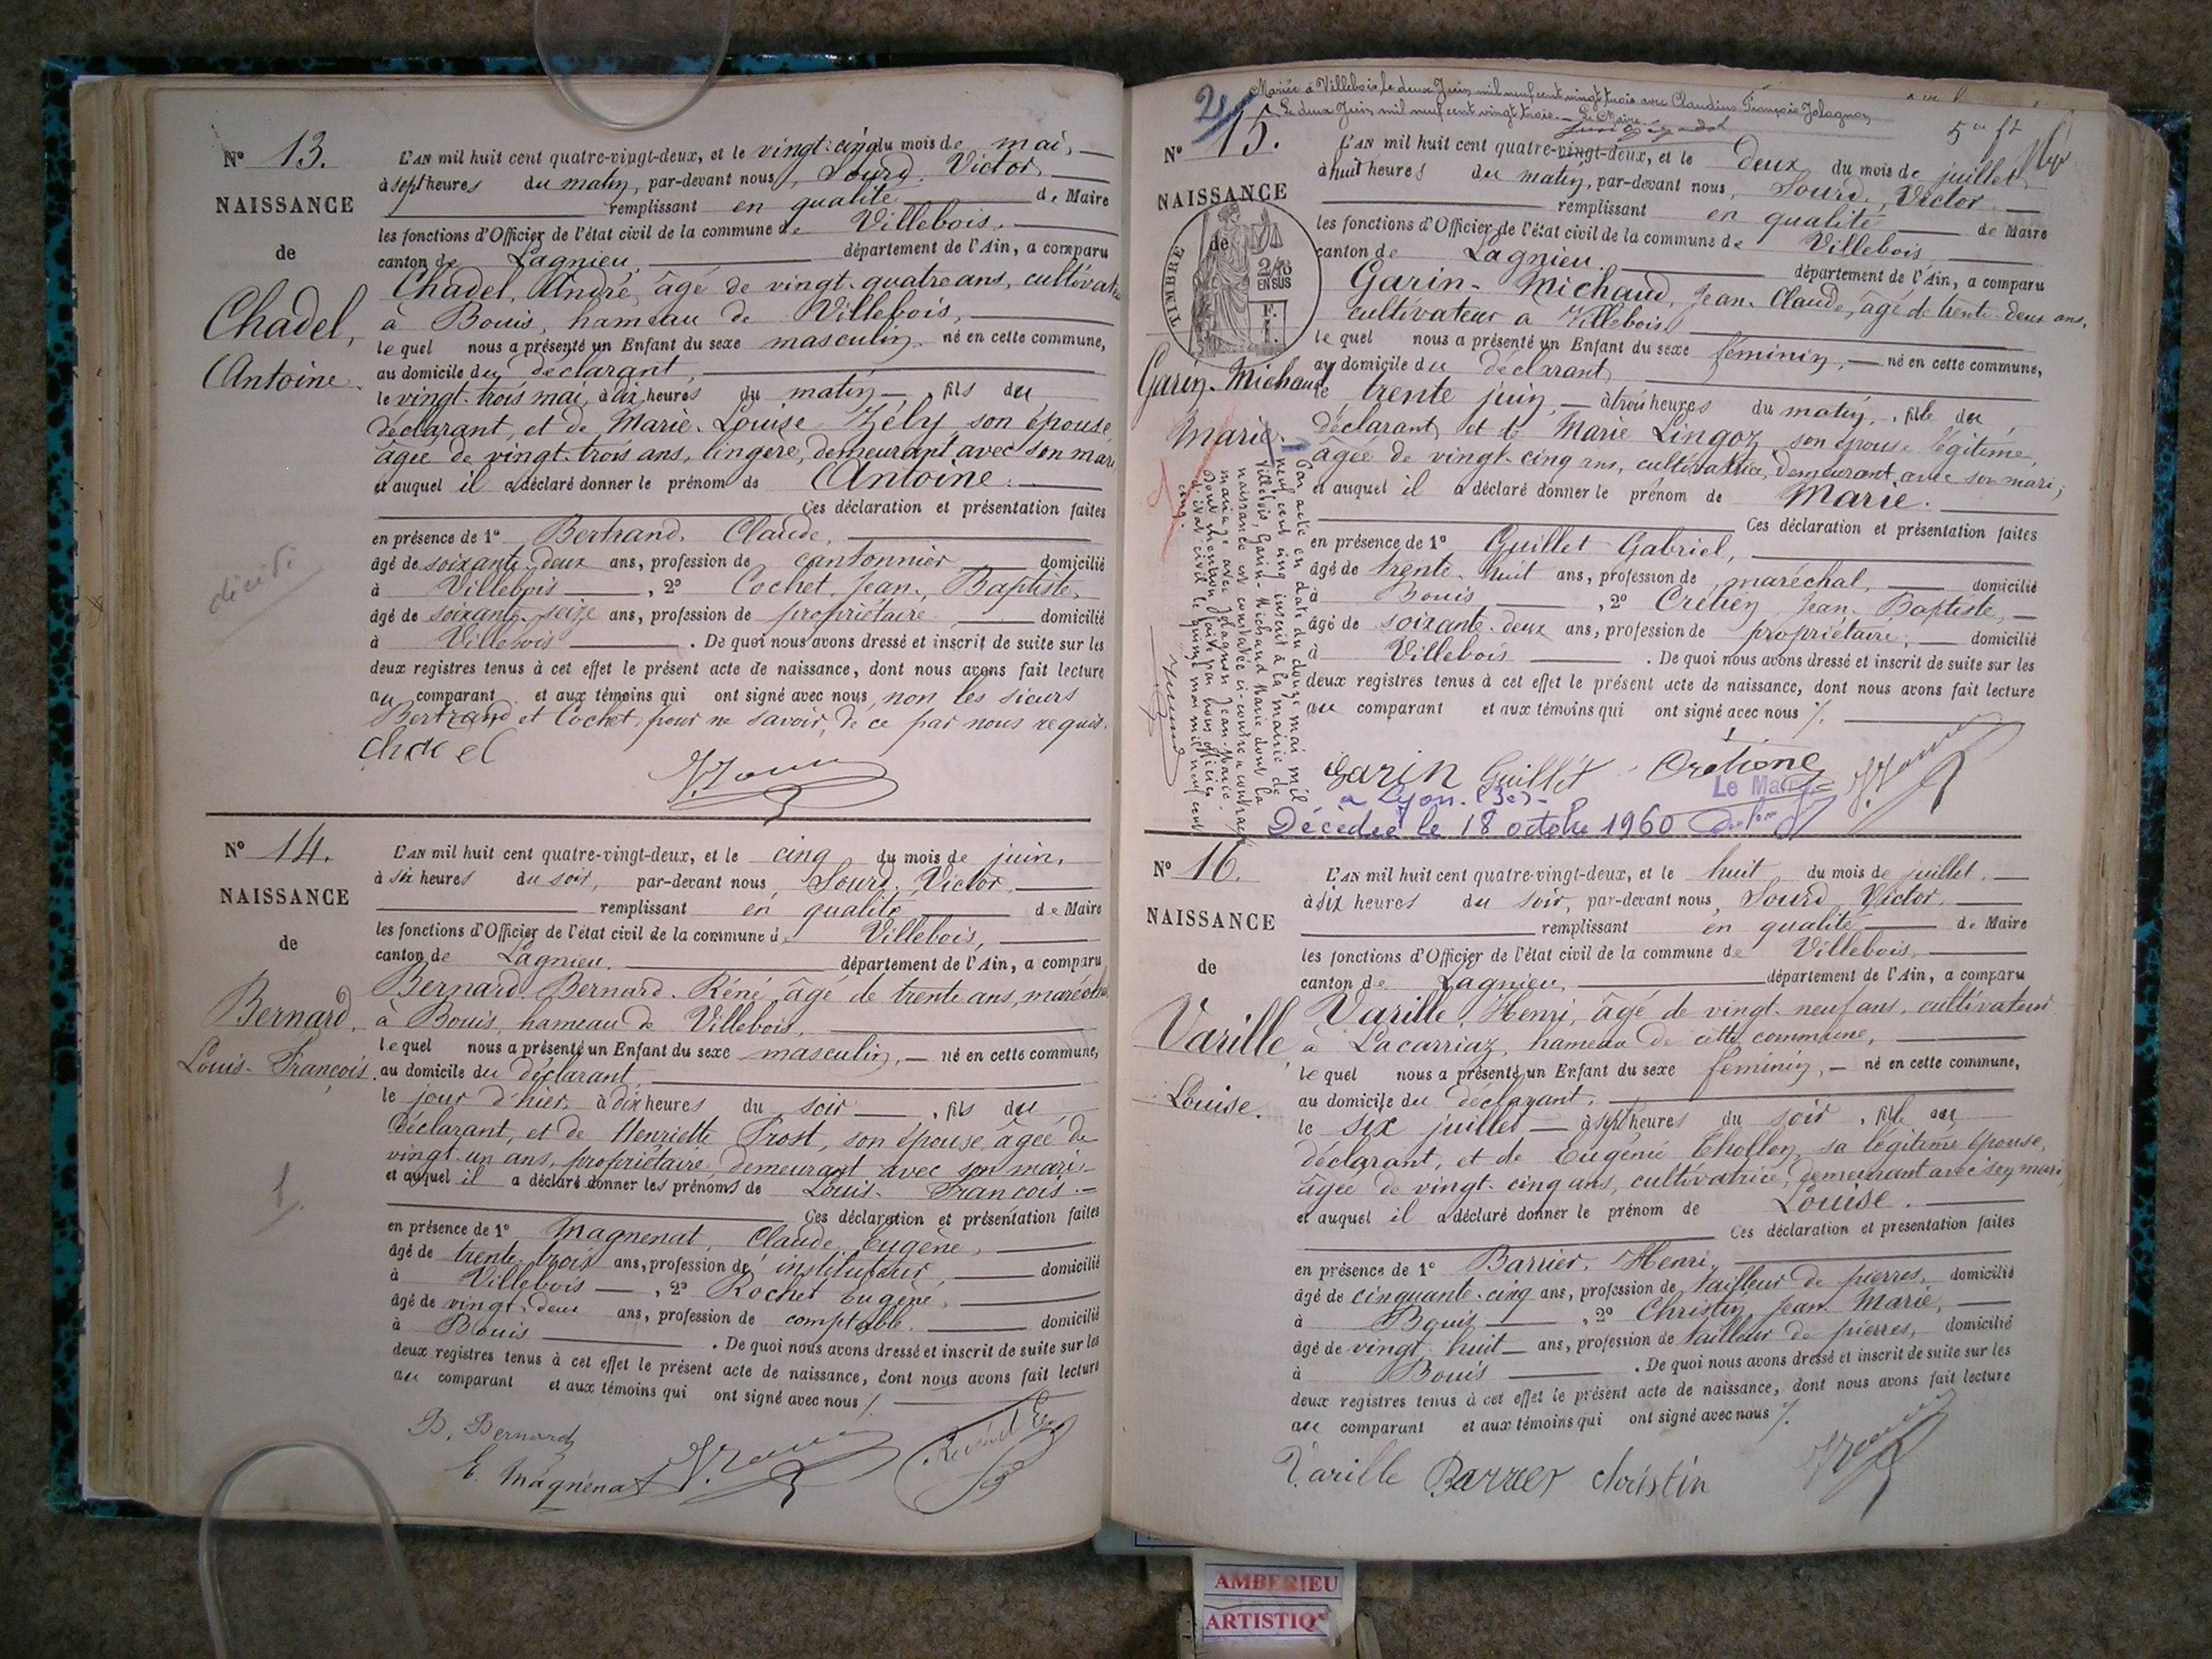 N° 13.
NAISSANCE
de
Chadel,
Antoine.
décédé
L'AN mil huit cent quatre-vingt-deux, et le vingt-cinq du mois de mai,
à sept heures du matin, par-devant nous, Sourd, Victor,
remplissant en qualité de Maire
les fonctions d'Officier de l'état civil de la commune de Villebois,
canton de Lagnieu, département de l'Ain, a comparu
Chadel, André, âgé de vingt-quatre ans, cultivateur
à Bouis, hameau de Villebois,
lequel nous a présenté un Enfant du sexe masculin, né en cette commune,
au domicile du déclarant,
le vingt-trois mai, à dix heures du matin, fils du
déclarant, et de Marie-Louise Zély son épouse,
âgée de vingt-trois ans, lingère, demeurant avec son mari
et auquel il a déclaré donner le prénom de Antoine.
Ces déclaration et présentation faites
en présence de 1° Bertrand, Claude,
âgé de soixante-deux ans, profession de cantonnier domicilié
à Villebois, 2° Cochet, Jean, Baptiste,
âgé de soixante-seize ans, profession de propriétaire domicilié
à Villebois. De quoi nous avons dressé et inscrit de suite sur les
deux registres tenus à cet effet le présent acte de naissance, dont nous avons fait lecture
au comparant et aux témoins qui ont signé avec nous, non les sieurs
Bertrand et Cochet, pour ne savoir, de ce par nous requis.
Chadel
N° 14.
NAISSANCE
de
Bernard,
Louis-François.
L'AN mil huit cent quatre-vingt-deux, et le cinq du mois de juin,
à six heures du soir, par-devant nous, Sourd, Victor,
remplissant en qualité de Maire
les fonctions d'Officier de l'état civil de la commune de Villebois,
canton de Lagnieu, département de l'Ain, a comparu
Bernard, Bernard-Réné âgé de trente ans, maréchal
à Bouis, hameau de Villebois,
lequel nous a présenté un Enfant du sexe masculin, né en cette commune,
au domicile du déclarant,
le jour d'hier, à dix heures du soir, fils du
déclarant, et de Henriette Trost, son épouse, âgée de
vingt-un ans, propriétaire, demeurant avec son mari,
et auquel il a déclaré donner les prénoms de Louis-François.
Ces déclaration et présentation faites
en présence de 1° Magnenat, Claude, Eugène,
âgé de trente-trois ans, profession de instituteur, domicilié
à Villebois, 2° Rochet Eugène,
âgé de vingt-deux ans, profession de comptable domicilié
à Bouis. De quoi nous avons dressé et inscrit de suite sur les
deux registres tenus à cet effet le présent acte de naissance, dont nous avons fait lecture
au comparant et aux témoins qui ont signé avec nous
B. Bernard
E. Magnenat
Mariée à Villebois le deux Juin mil neuf cent vingt trois avec Claudius François Jolagnon
Le deux Juin mil neuf cent vingt trois. Le Maire.
N° 15.
NAISSANCE
de
TIMBRE
2/10
EN SUS
Garin-Michaud
Marie.
L'AN mil huit cent quatre-vingt-deux, et le deux du mois de juillet
à huit heures du matin, par-devant nous, Sourd, Victor,
remplissant en qualité de Maire
les fonctions d'Officier de l'état civil de la commune de Villebois
canton de Lagnieu, département de l'Ain, a comparu
Garin-Michaud, Jean-Claude, âgé de trente-deux ans,
cultivateur à Villebois,
lequel nous a présenté un Enfant du sexe féminin, né en cette commune,
au domicile du déclarant
le trente juin, à trois heures du matin, fille du
déclarant et de Marie Lingoz son épouse légitime,
âgée de vingt-cinq ans, cultivatrice, demeurant avec son mari;
et auquel il a déclaré donner le prénom de Marie.
Ces déclaration et présentation faites
en présence de 1° Guillet Gabriel,
âgé de trente-huit ans, profession de maréchal, domicilié
à Bouis, 2° Crétien Jean-Baptiste,
âgé de soixante-deux ans, profession de propriétaire, domicilié
à Villebois. De quoi nous avons dressé et inscrit de suite sur les
deux registres tenus à cet effet le présent acte de naissance, dont nous avons fait lecture
au comparant et aux témoins qui ont signé avec nous
Par acte en date du douze mai mil
neuf cent cinq inscrit à la mairie de
Villebois, Garin-Michaud Marie dont la
naissance est constatée ci-contre a contracté
mariage avec Jolagnon Jean-Marie.
Dont mention faite par nous officier
d'état civil le quinze mai mil neuf cent
cinq.
Garin Guillet
Le Maire
à Lyon (3e)
Décédée le 18 octobre 1960
N° 16.
NAISSANCE
de
Varille
Louise.
L'AN mil huit cent quatre-vingt-deux, et le huit du mois de juillet,
à six heures du soir, par-devant nous, Sourd Victor,
remplissant en qualité de Maire
les fonctions d'Officier de l'état civil de la commune de Villebois,
canton de Lagnieu, département de l'Ain, a comparu
Varille, Henri, âgé de vingt-neuf ans, cultivateur
à Lacarriaz, hameau de cette commune,
lequel nous a présenté un Enfant du sexe féminin, né en cette commune,
au domicile du déclarant,
le six juillet à sept heures du soir, fille du
déclarant, et de Eugénie Chollon, sa légitime épouse,
âgée de vingt-cinq ans, cultivatrice, demeurant avec son mari,
et auquel il a déclaré donner le prénom de Louise.
Ces déclaration et présentation faites
en présence de 1° Barrier, Henri,
âgé de cinquante-cinq ans, profession de tailleur de pierres, domicilié
à Bouis, 2° Christin, Jean-Marie,
âgé de vingt-huit ans, profession de tailleur de pierres, domicilié
à Bouis. De quoi nous avons dressé et inscrit de suite sur les
deux registres tenus à cet effet le présent acte de naissance, dont nous avons fait lecture
au comparant et aux témoins qui ont signé avec nous
Varille Barrier Christin
AMBERIEU
ARTISTIQ